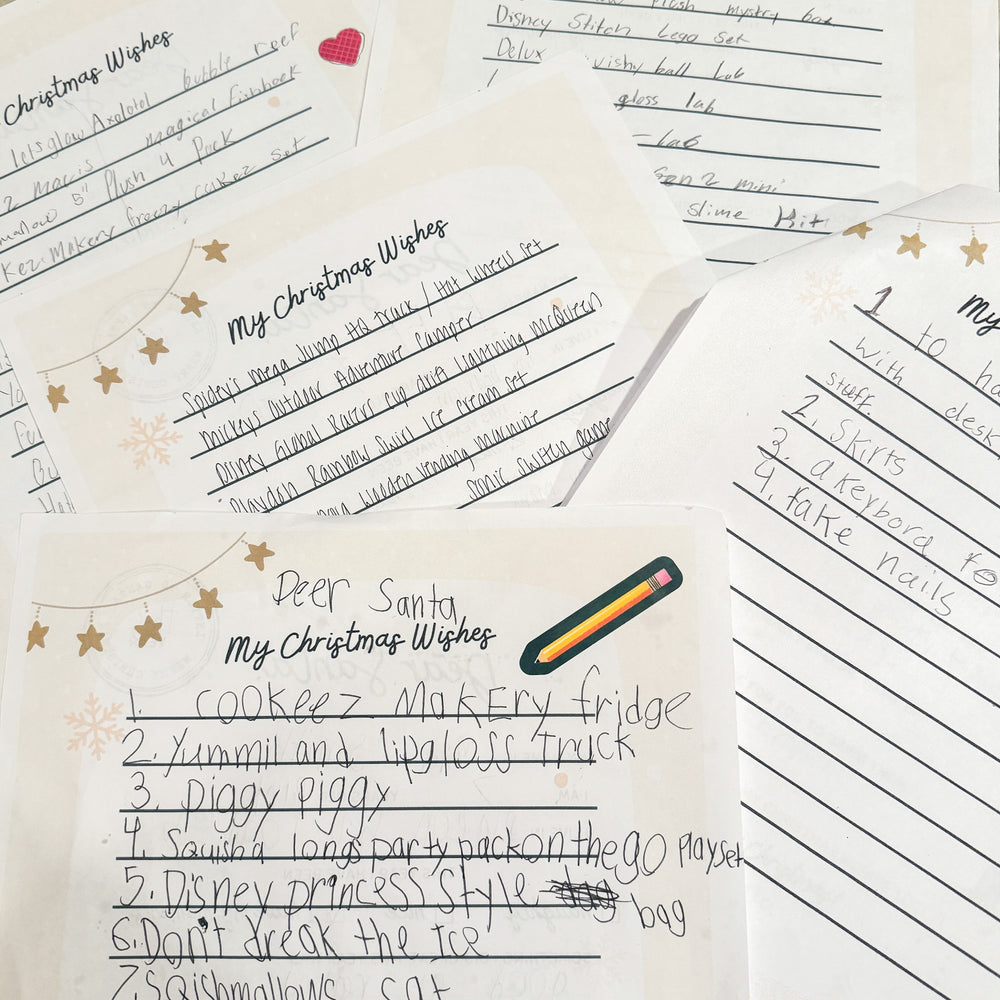 Christmas Wishes
letsglow Axolotol bubble reef
2 magical fishbook
5" Plush 4 Pack
Makery freezy cakez set
plush mystry box
Disney Stitch Lego set
Delux uishy ball Lab
gloss lab
lab
gen 2 mini
slime Kit
My Christmas Wishes
Spidey's mega Jump HQ truck / Hot Wheels set
mickeys outdoor Adventure Camper
Disney Global Racers cup drift Lightning mcQueen
playdoh Rainbow Swirl Ice cream set
wooden vending machine
sonic switch game
My
1 to ha
with desk
stuff.
2. Skirts
3. a keybord fo
4. fake nails
Deer Santa
My Christmas Wishes
1. cookeez MakEry fridge
2. Yummil and lipgloss truck
3. piggy piggy
4. Squisha longs party packon the go Playset
5. Disney princess Style bag
6. Don't dreak the Ice
7. Sqishmallows cat